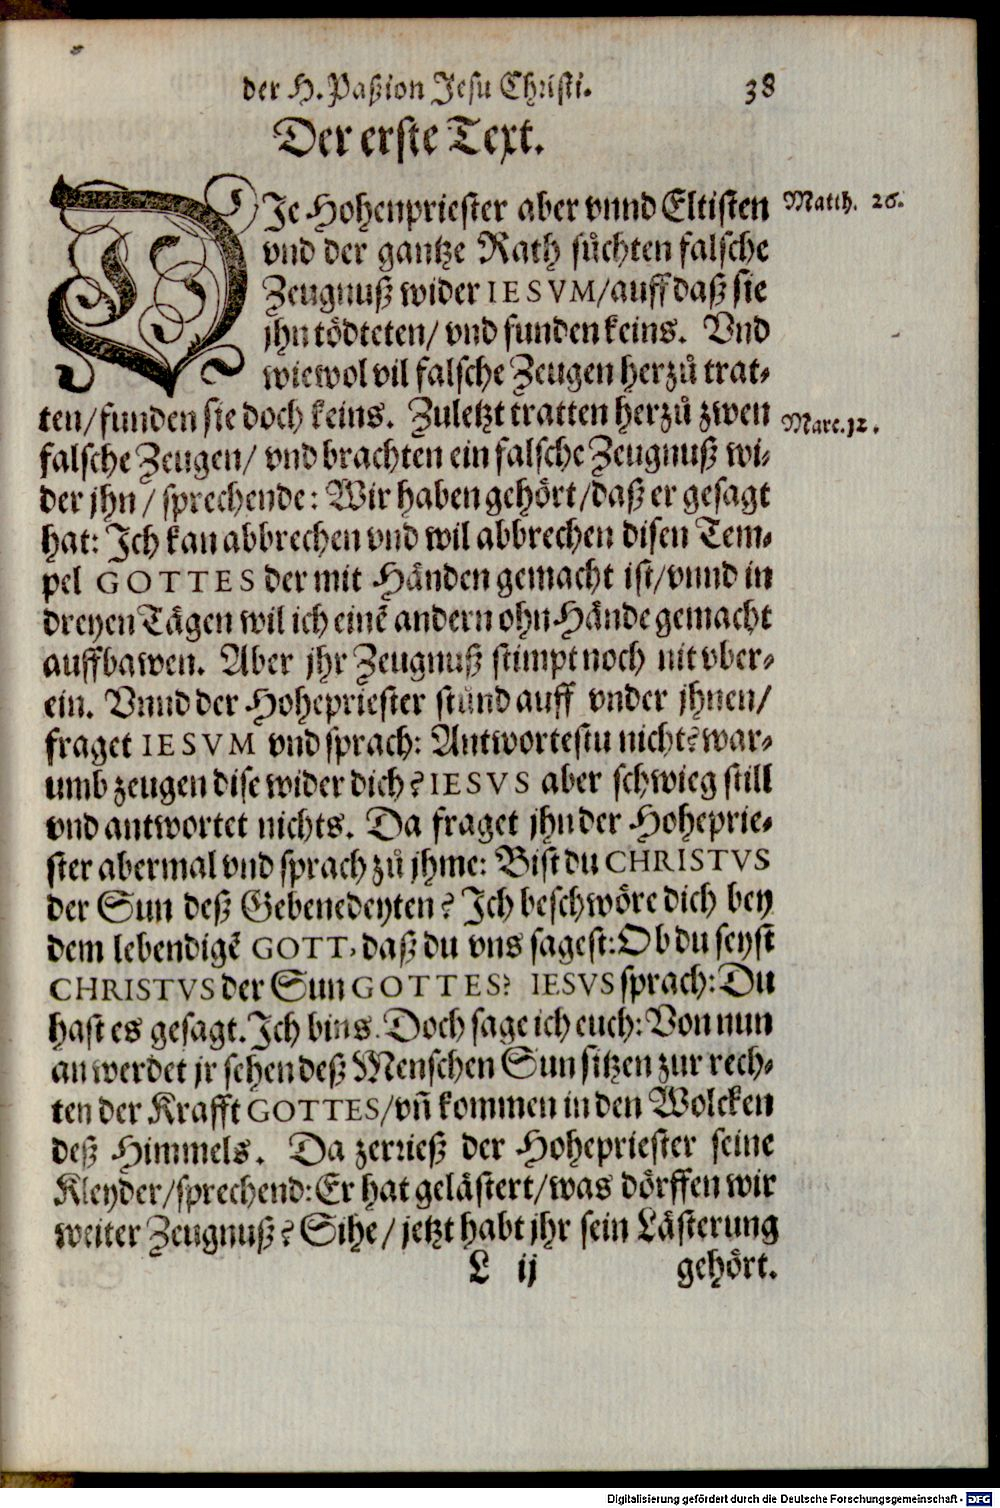 der H. Paßion Jesu Christi. 38
Der erste Text.
DIe Hohenpriester aber vnnd Eltisten
vnd der gantze Rath sůchten falsche
Zeugnuß wider IESVM/auff daß sie
jhn tödteten/ vnd funden keins. Vnd
wiewol vil falsche Zeugen herzů trat-
ten/funden sie doch keins. Zuletzt tratten herzů zwen
falsche Zeugen/ vnd brachten ein falsche Zeugnuß wi-
der jhn/ sprechende: Wir haben gehört/daß er gesagt
hat: Ich kan abbrechen vnd wil abbrechen disen Tem-
pel GOTTES der mit Händen gemacht ist/vnnd in
dreyen Tägen wil ich einē andern ohn Hände gemacht
auffbawen. Aber jhr Zeugnuß stimpt noch nit vber-
ein. Vnnd der Hohepriester stůnd auff vnder jhnen/
fraget IESVM vnd sprach: Antwortestu nicht? war-
umb zeugen dise wider dich? IESVS aber schwieg still
vnd antwortet nichts. Da fraget jhn der Hoheprie-
ster abermal vnd sprach zů jhme: Bist du CHRISTVS
der Sun deß Gebenedeyten? Ich beschwöre dich bey
dem lebendigē GOTT, daß du vns sagest: Ob du seyst
CHRISTVS der Sun GOTTES? IESVS sprach: Du
hast es gesagt. Ich bins. Doch sage ich euch: Von nun
an werdet jr sehen deß Menschen Sun sitzen zur rech-
ten der Krafft GOTTES/vñ kommen in den Wolcken
deß Himmels. Da zerrieß der Hohepriester seine
Kleyder/sprechend: Er hat gelästert/was dörffen wir
weiter Zeugnuß? Sihe/ jetzt habt jhr sein Lästerung
L ij gehört.
Matth. 26.
Marc. 12.
Digitalisierung gefördert durch die Deutsche Forschungsgemeinschaft - DFG